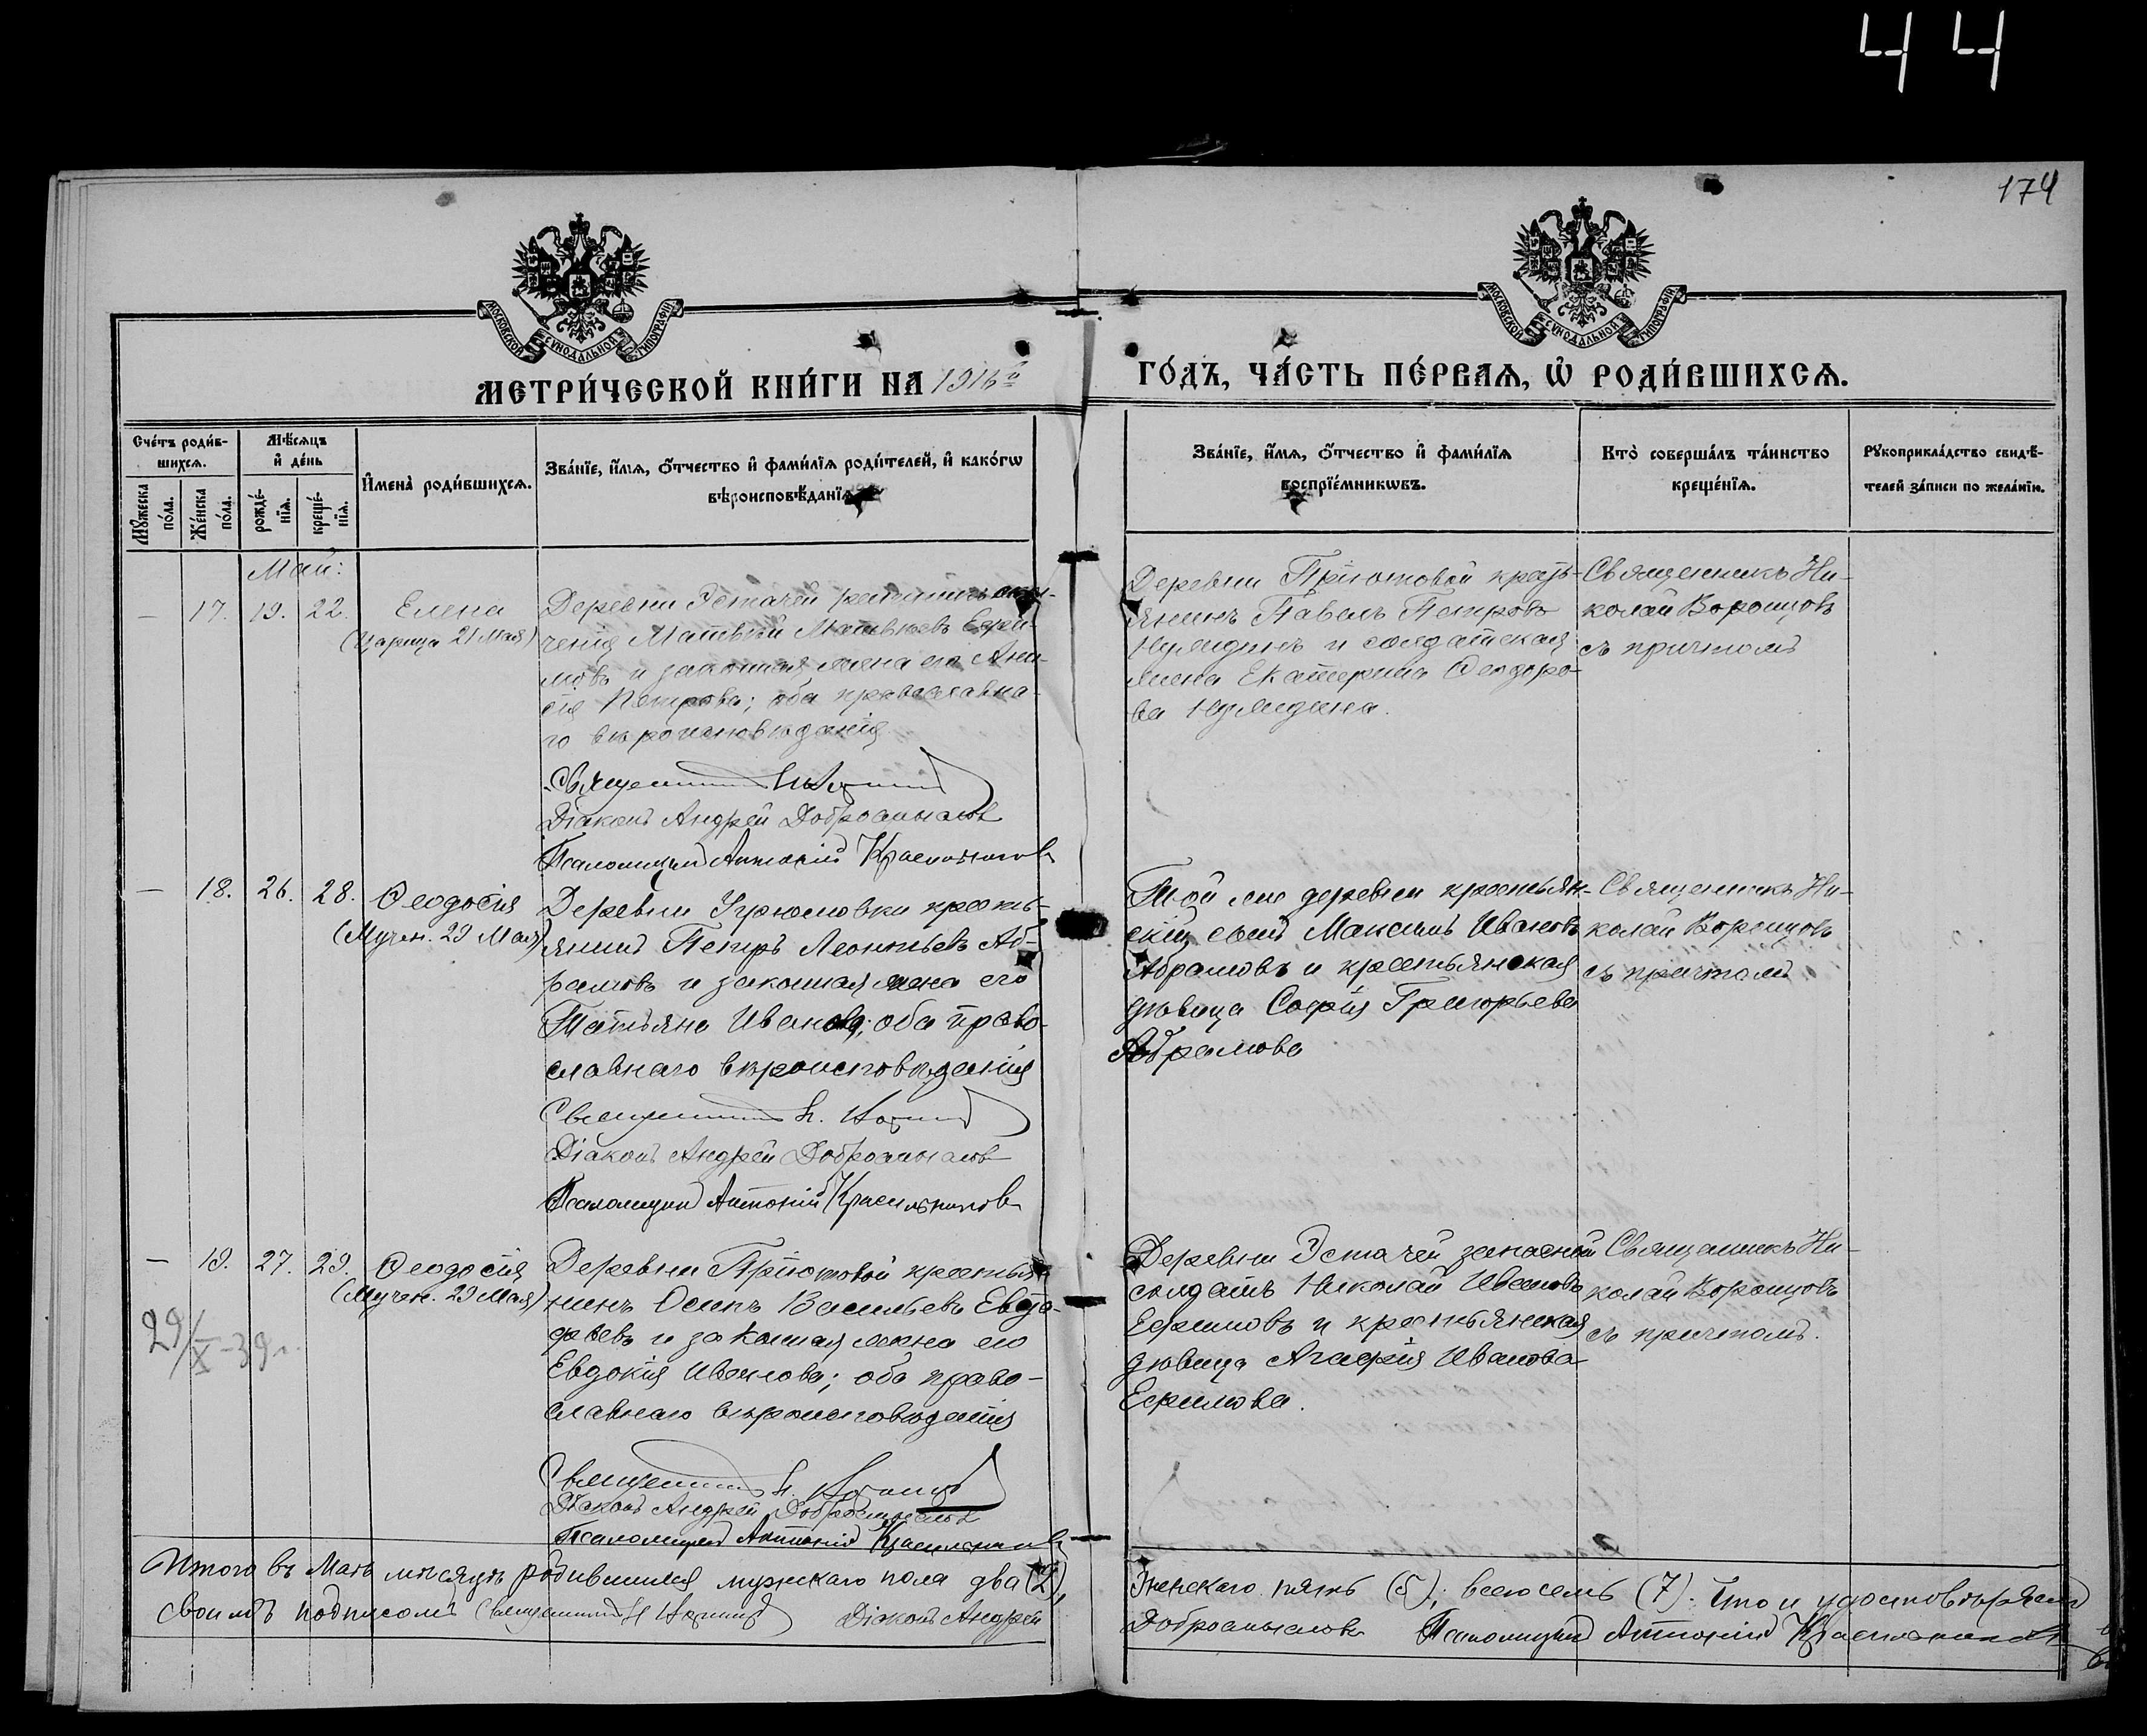 44
174
МОСКОВСКОЙ СѴНОДАЛЬНОЙ ТИПОГРАФІИ
МОСКОВСКОЙ СѴНОДАЛЬНОЙ ТИПОГРАФІИ
МЕТРИ́ЧЕСКОЙ КНИ́ГИ НА 1916й
ГО́ДЪ, ЧА́СТЬ ПЕ́РВАѦ, Ѡ҆ РОДИ́ВШИХСѦ.
Сче́тъ роди́в-
шихсѧ.
Мꙋ́жеска
по́ла.
Же́нска
по́ла.
Мѣ́сѧцъ
и҆ де́нь
рожде́-
нїѧ.
креще́-
нїѧ.
И҆мена̀ роди́вшихсѧ.
Зва́нїе, и҆́мѧ, ѻ҆́тчество и҆ фами́лїѧ роди́телей, и҆ како́гѡ
вѣроисповѣ́данїѧ
Зва́нїе, и҆́мѧ, ѻ҆́тчество и҆ фами́лїѧ
воспрїе́мникѡвъ.
Кто̀ соверша́лъ та́инство
креще́нїѧ.
Рꙋкоприкла́дство свидѣ́-
телей за́писи по жела́нїю.
Май:
— 17. 19. 22.
Елена
(Царица 21 Мая)
Деревни Эстачей
Матвѣй Матвѣевъ Ефи-
мовъ и законная жена его Ани-
сія Петрова; оба православна-
го вѣроисповѣданія
Священникъ
Діаконъ Андрей Добросмысловъ
Псаломщикъ Антоній Красильниковъ
Деревни Пріютовой кресть-
янинъ Павелъ Петровъ
и солдатская
жена Екатерина Ѳеодоро-
ва
Священникъ Ни-
колай Воронцовъ
съ причтомъ
— 18. 26. 28.
Ѳеодосія
(Мучен. 29 Мая)
Деревни Угрюмовки кресть-
янинъ Петръ Леонтьевъ Аб-
рамовъ и законная жена его
Татьяна Иванова; оба право-
славнаго вѣроисповѣданія
Священникъ Н.
Діаконъ Андрей Добросмысловъ
Псаломщикъ Антоній Красильниковъ
Той же деревни крестьян-
скій сынъ Максимъ Ивановъ
Абрамовъ и крестьянская
дѣвица Софія Григорьева
Абрамова
Священникъ Ни-
колай Воронцовъ
съ причтомъ
— 19. 27. 29.
Ѳеодосія
(Мучен. 29 Мая)
29/X-39г.
Деревни Пріютовой крестья-
нинъ Осипъ Васильевъ Евста-
фьевъ и законная жена его
Евдокія Иванова; оба право-
славнаго вѣроисповѣданія
Священникъ Н.
Діаконъ Андрей Добросмысловъ
Псаломщикъ Антоній Красильниковъ
Деревни Эстачей запасной
солдатъ Николай Ивановъ
Ефимовъ и крестьянская
дѣвица Агафія Иванова
Ефимова.
Священникъ Ни-
колай Воронцовъ
съ причтомъ.
Итого въ Маѣ мѣсяцѣ родившихся мужскаго пола два (2),
женскаго пять (5); всего семь (7). Что и удостовѣряемъ
своимъ подписомъ Священникъ Н Діаконъ Андрей
Добросмысловъ Псаломщикъ Антоній Красильниковъ